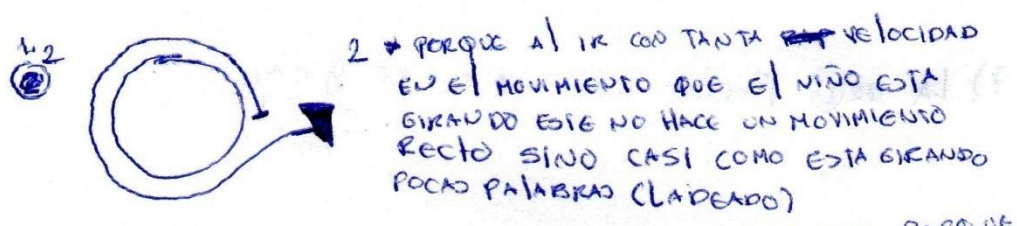 1.2
2
2 PORQUE Al IR CON TANTA VElOCIDAD
EN El MOVIMIENTO QUE El NIÑO ESTA
GIRANDO ESTE NO HACE UN MOVIMIENTO
RECTO SINO CASI COMO ESTA GIRANDO
POCAS PAlABRAS (LADEADO)